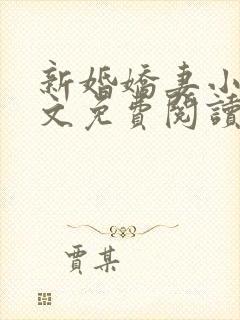 新婚嬌妻小
文免費閱讀
賈某